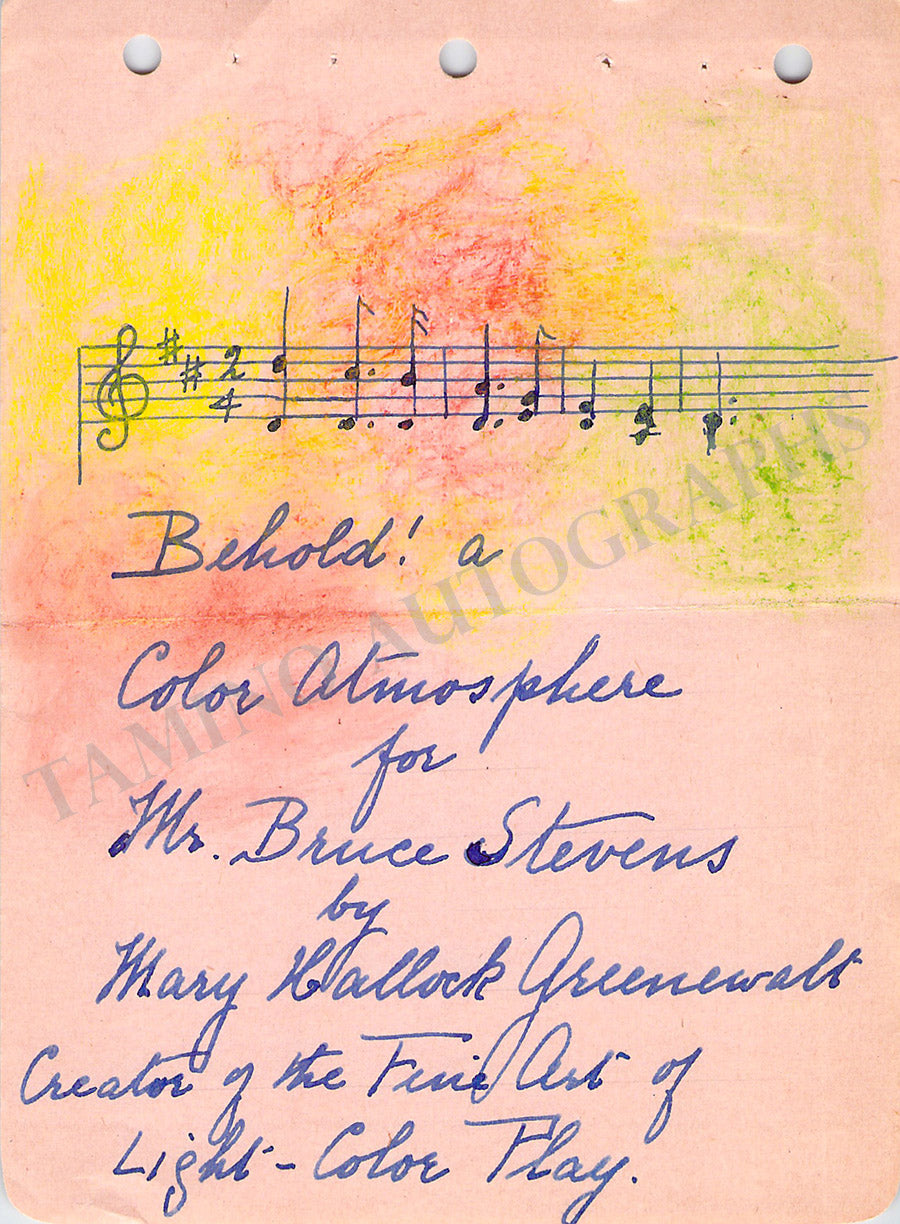 2
4
Behold! a
Color Atmosphere
for
Mr. Bruce Stevens
by
Mary Hallock Greenewalt
Creator of the Fine Art of
Light-Color Play.
TAMINO AUTOGRAPHS